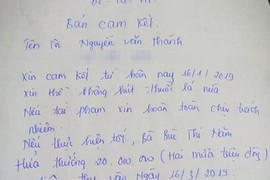 Bản cam kết.
Tên Tôi Nguyễn Văn Thánh
Xin cam kết từ hôm nay 16/1/2019
xin thề không hút thuốc lá nữa
Nếu tái phạm xin hoàn toàn chịu trách
nhiệm.
Nếu thực hiện tốt, bà Bùi Thị Năm
Hứa thưởng 20.000.000 (Hai mươi triệu đồng)
Ngày 16/3/2019.